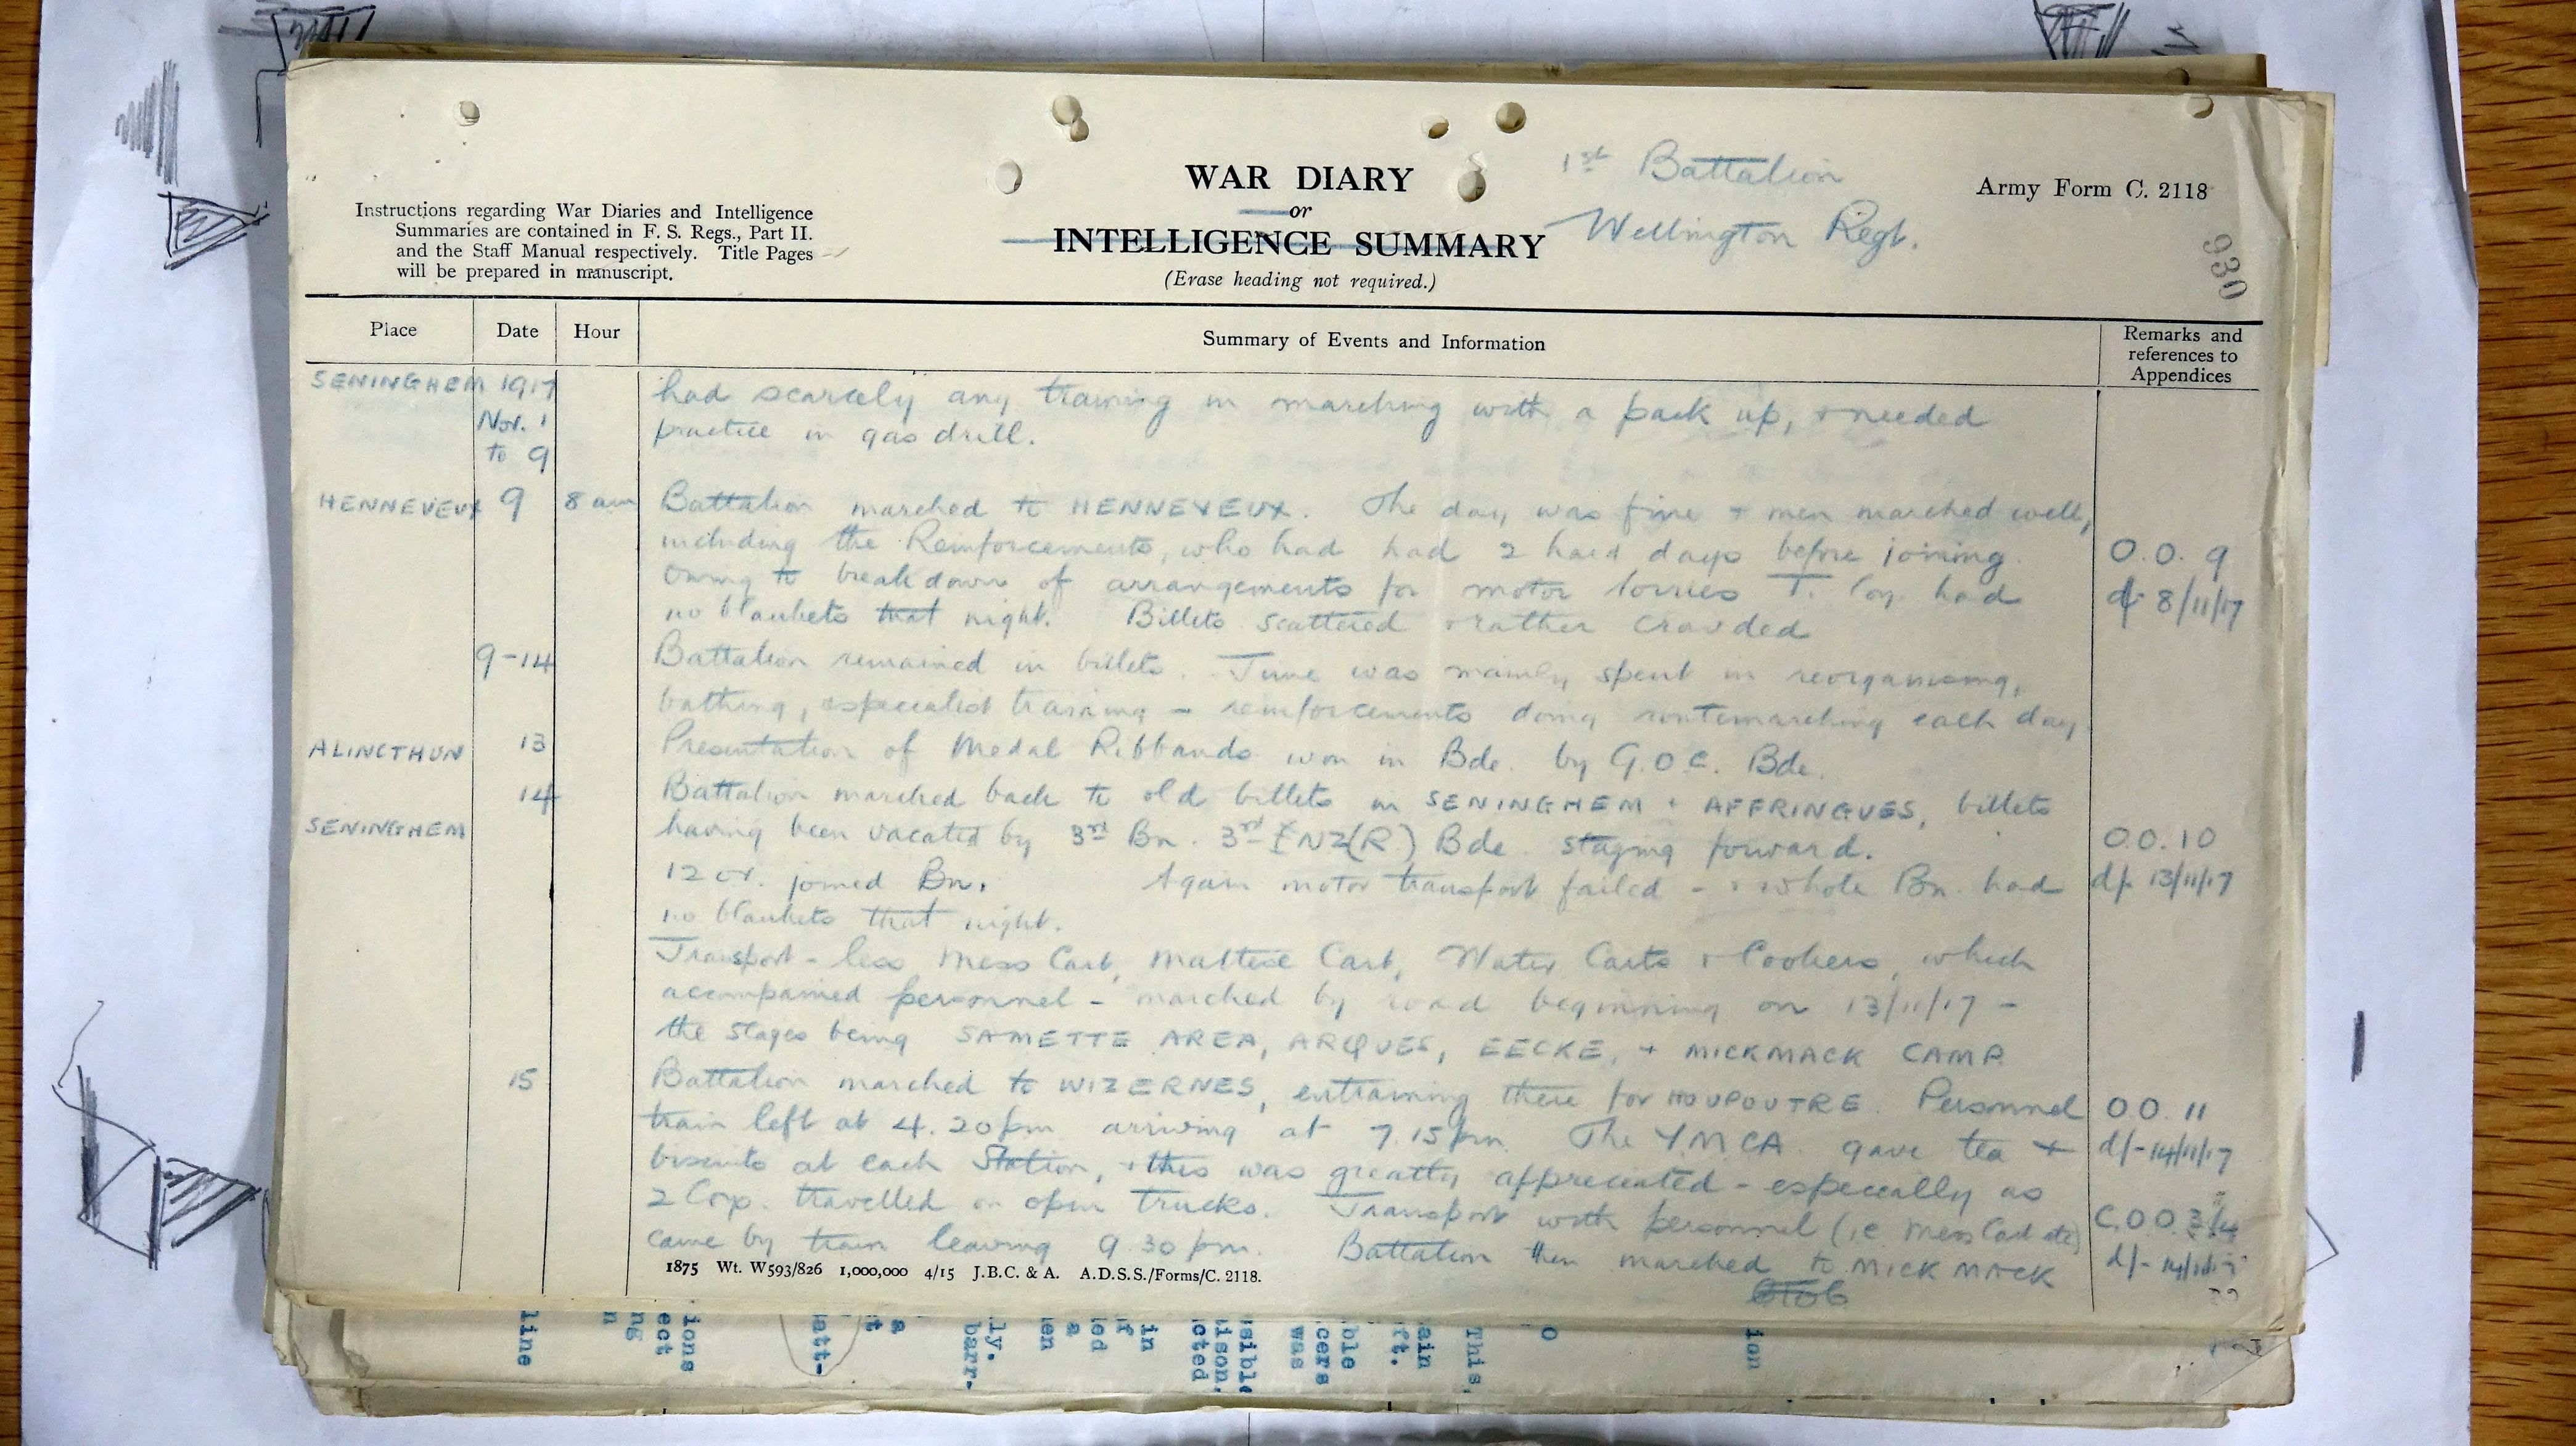 1st Battalion
Wellington Regt.
WAR DIARY
or
INTELLIGENCE SUMMARY
(Erase heading not required.)
Army Form C. 2118
930
Instructions regarding War Diaries and Intelligence
Summaries are contained in F. S. Regs., Part II.
and the Staff Manual respectively. Title Pages
will be prepared in manuscript.
Place Date Hour Summary of Events and Information Remarks and references to Appendices
SENINGHEM 1917 had scarcely any training in marching with a pack up, + needed
Nov. 1 practice in gas drill.
to 9
HENNEVEUX 9 8 am Battalion marched to HENNEVEUX. The day was fine + men marched well,
including the Reinforcements, who had had 2 hard days before joining. O.O. 9
Owing to breakdown of arrangements for motor lorries T. Coy. had d/- 8/11/17
no blankets that night. Billets scattered + rather crowded
9-14 Battalion remained in billets. Time was mainly spent in reorganising,
bathing, especialist training - reinforcements doing routemarching each day.
ALINCTHUN 13 Presentation of Medal Ribbands won in Bde. by G.O.C. Bde.
14 Battalion marched back to old billets in SENINGHEM + AFFRINGUES, billets
SENINGHEM having been vacated by 3rd Bn. 3rd NZ(R.) Bde. staging forward. O.O. 10
12 or. joined Bn. Again motor transport failed - + whole Bn. had d/- 13/11/17
no blankets that night.
Transport - less Mess Cart, Maltese Cart, Water Carts + Cookers, which
accompanied personnel - marched by road beginning on 13/11/17 -
the stages being SAMETTE AREA, ARQUES, EECKE, + MICKMACK CAMP.
15 Battalion marched to WIZERNES, entraining there for HOUPOUTRE. Personnel O.O. 11
train left at 4.20pm arriving at 7.15pm. The Y.M.C.A. gave tea + d/- 14/11/17
biscuits at each Station, + this was greatly appreciated - especially as
2 Coys. travelled in open trucks. Transport with personnel (i.e Mess Cart etc)
came by train leaving 9.30 pm. Battalion then marched to MICK MACK d/- 14/11/17
1875 Wt. W593/826 1,000,000 4/15 J.B.C. & A. A.D.S.S./Forms/C. 2118.
line
ng
ect
ions
att-
a
barr-
ly.
en
a
ed
in
cted
ison.
sible
was
cers
ble
ft.
ain
This,
ion